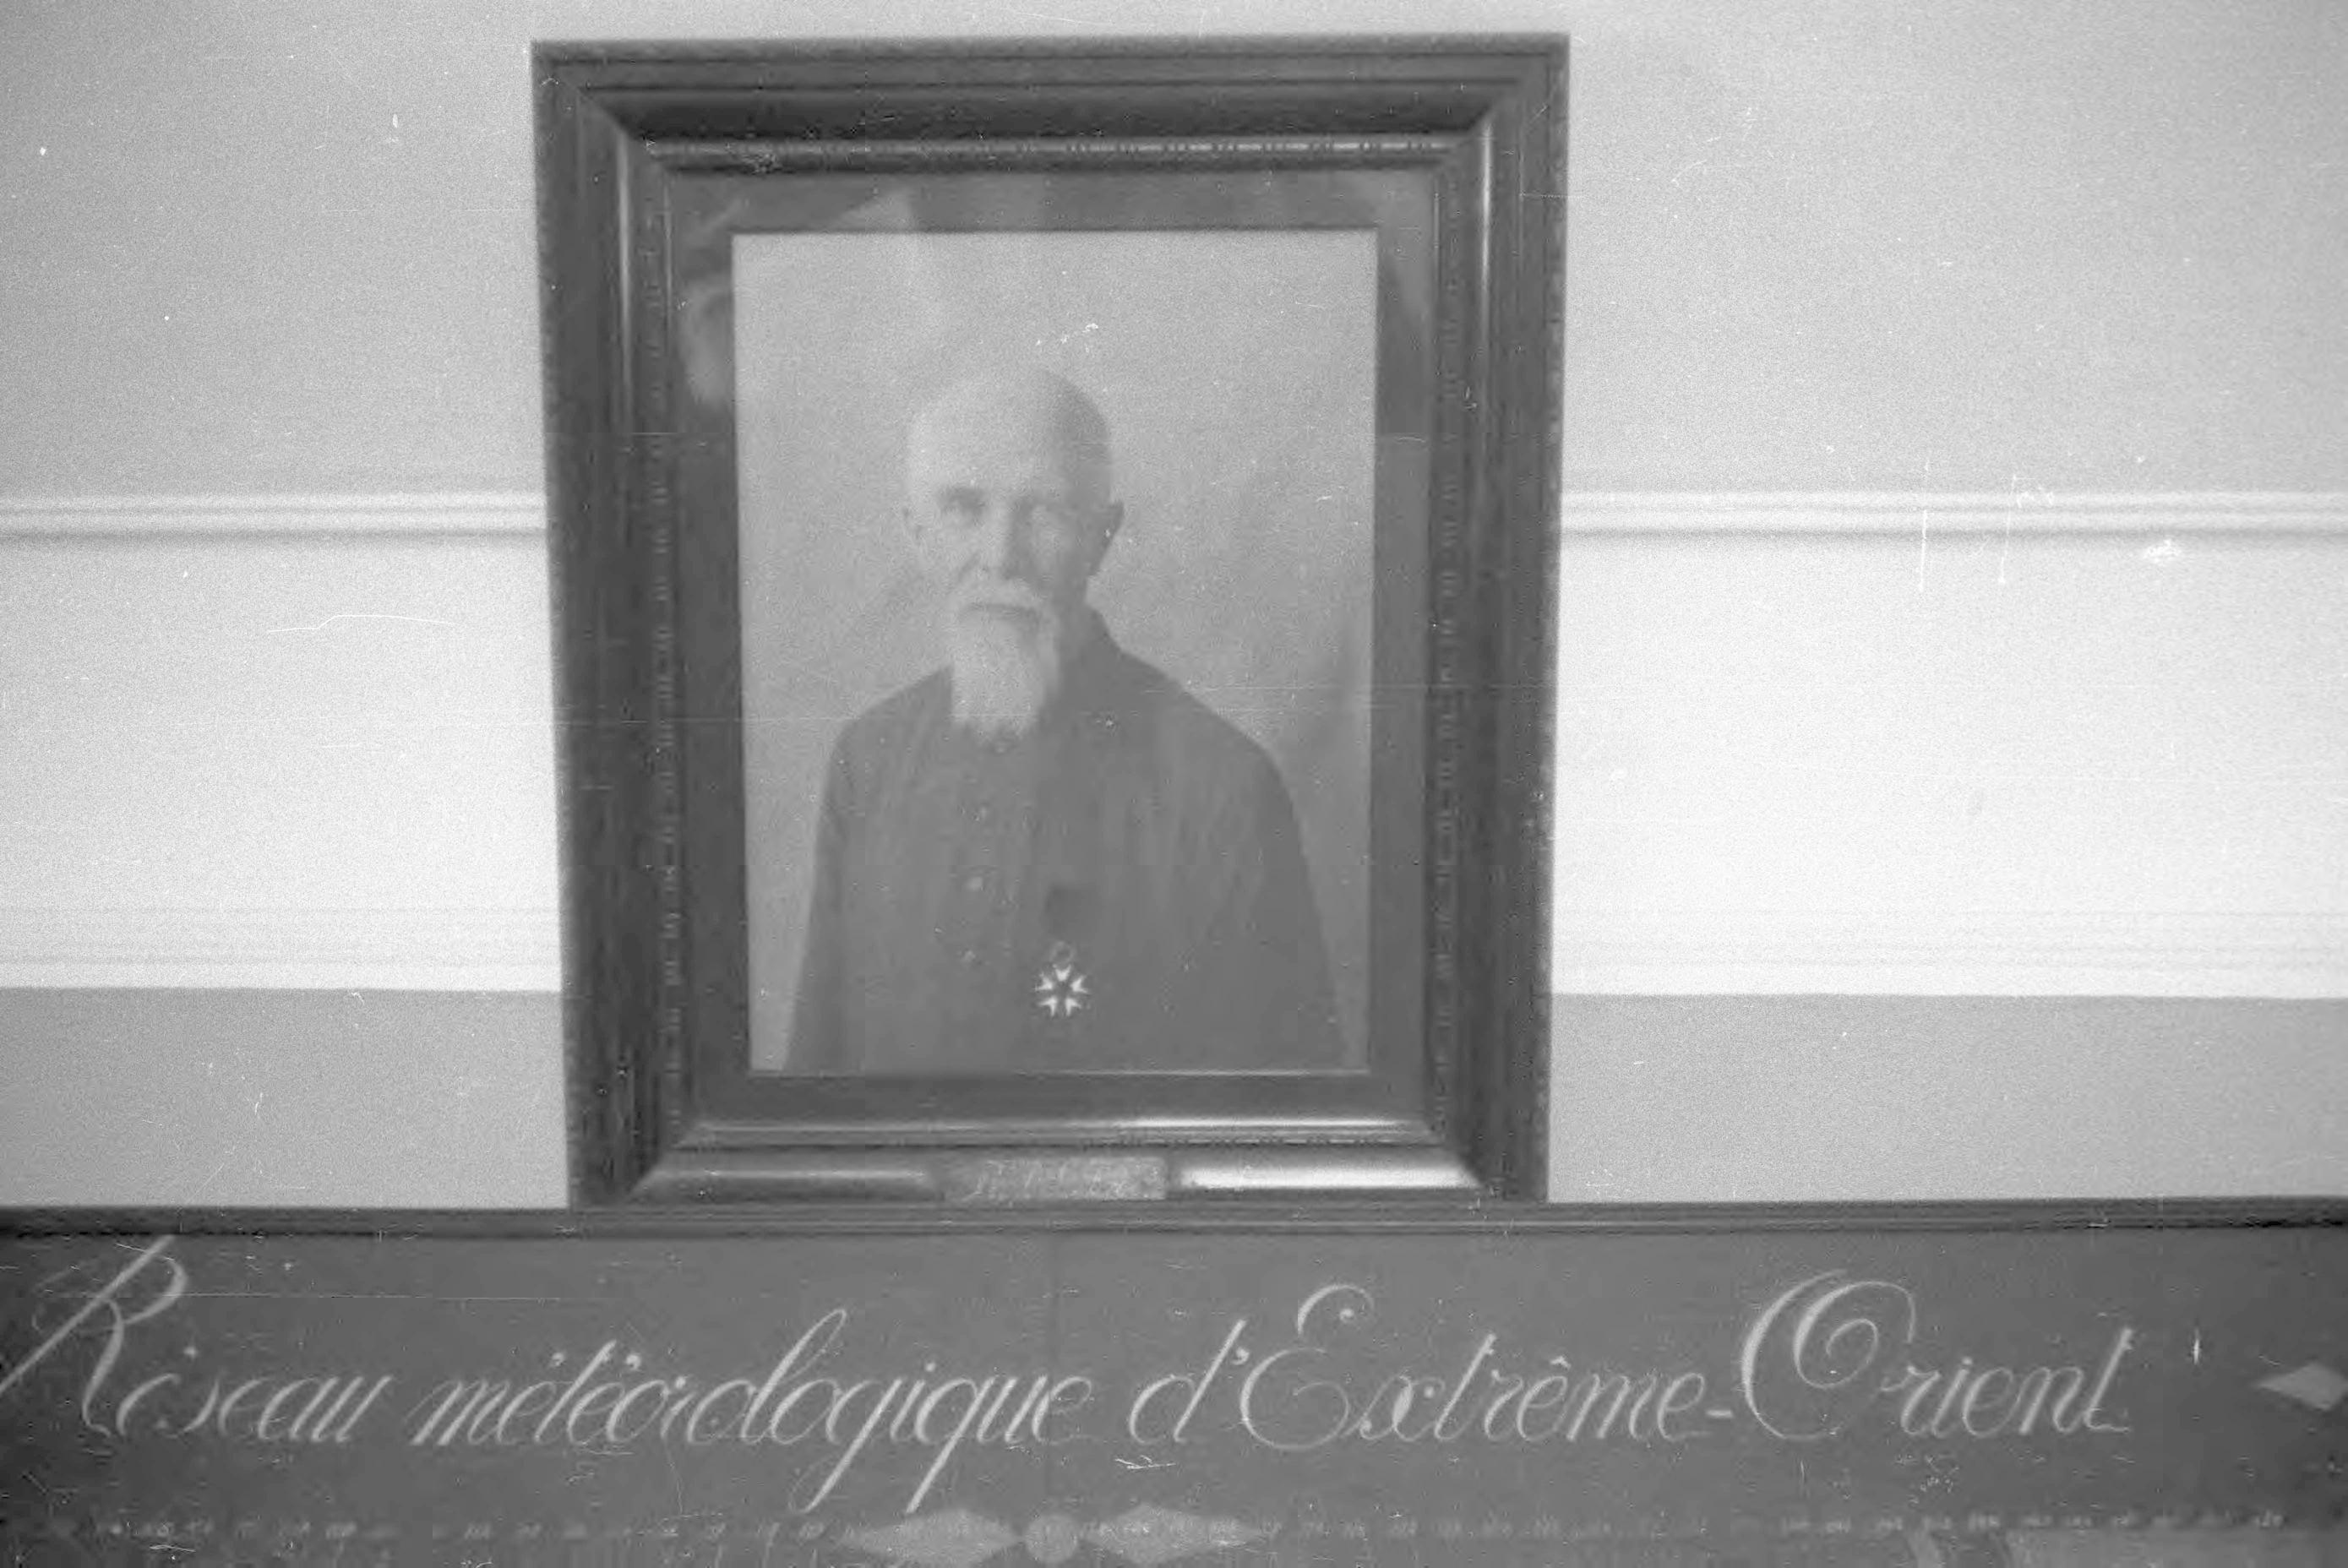 Réseau météorologique d'Extrême-Orient